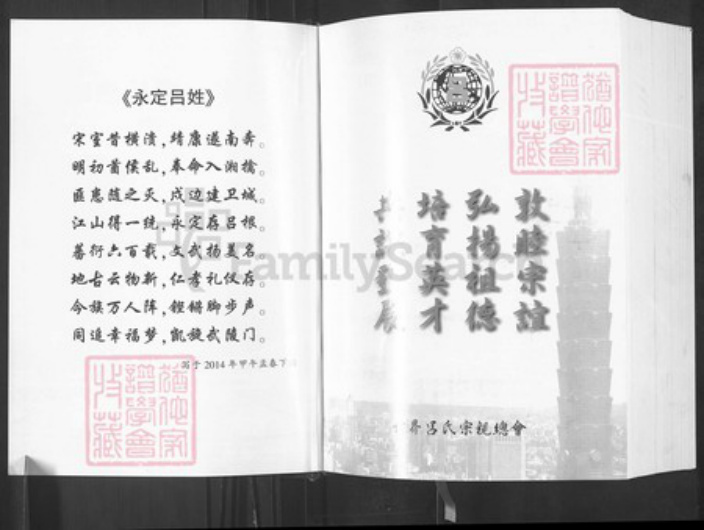 《永定吕姓》
宋室昔横溃，靖康遂南奔。
明初酋侯乱，奉命入湘擒。
匪患随之灭，戍边建卫城。
江山得一统，永定存吕根。
蕃衍六百载，文武扬美名
地古云物新，仁孝礼仪存。
今族万人阵，铿锵脚步声。
同追幸福梦，凯旋武陵门。
写于2014年甲午孟春下
猶他家
譜學會
收藏
FamilySearch
猶他家
譜學會
收藏
敦睦宗誼
弘揚祖德
培育英才
展
界呂氏宗親總會